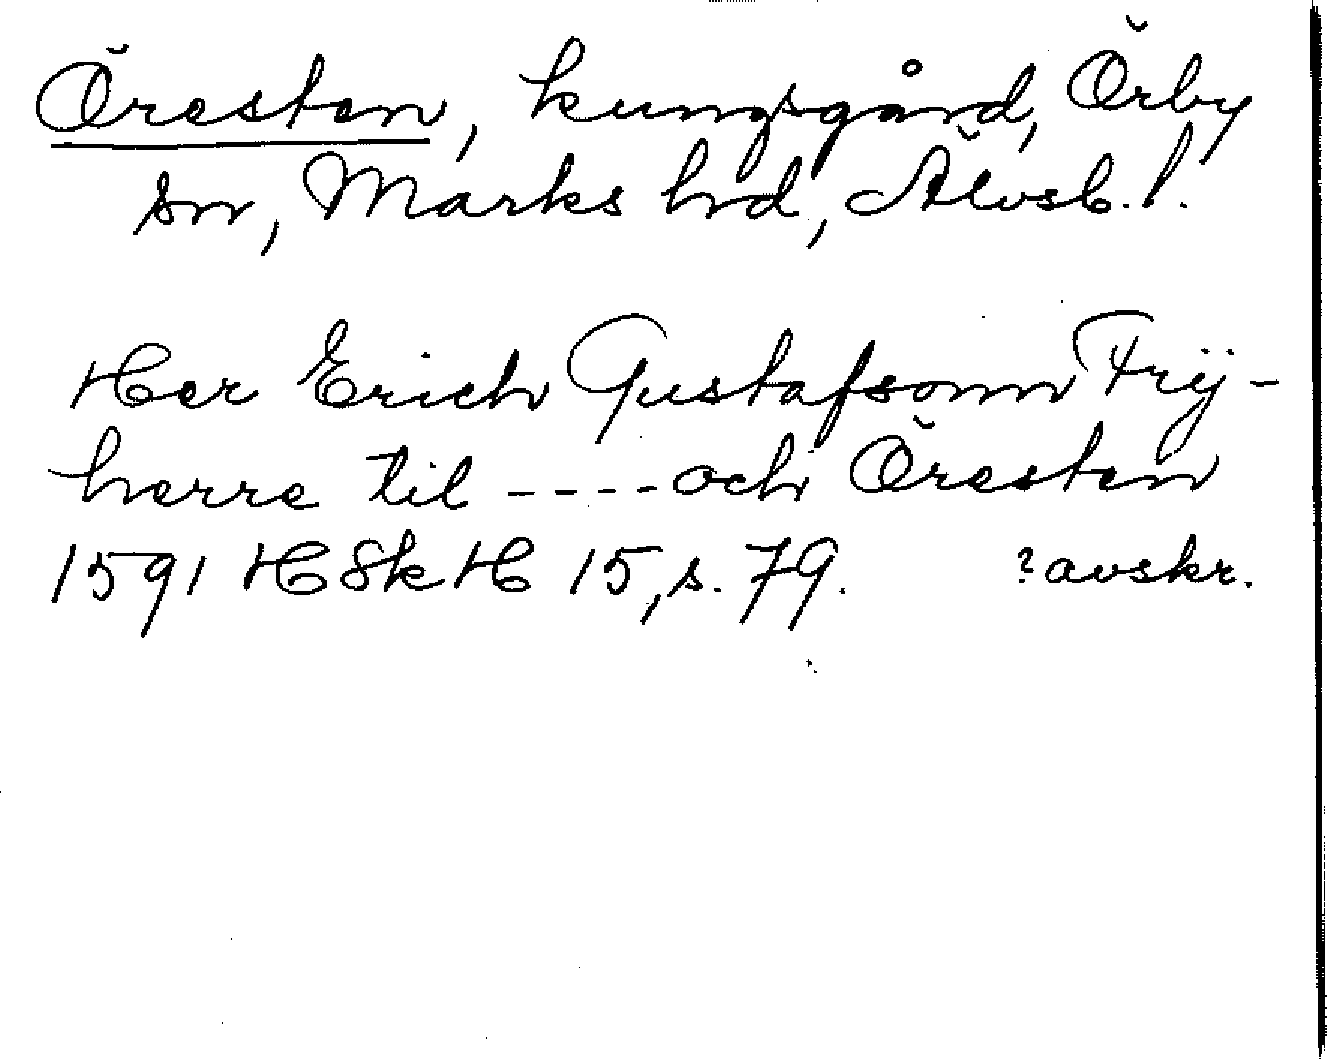 Öresten, kungsgård, Örby
sn, Marks hd, Älvsb. l.
Her Erich Gustafsonn Frij-
herre til ---- och Öresten
1591 HSkH 15, s. 79. ? avskr.